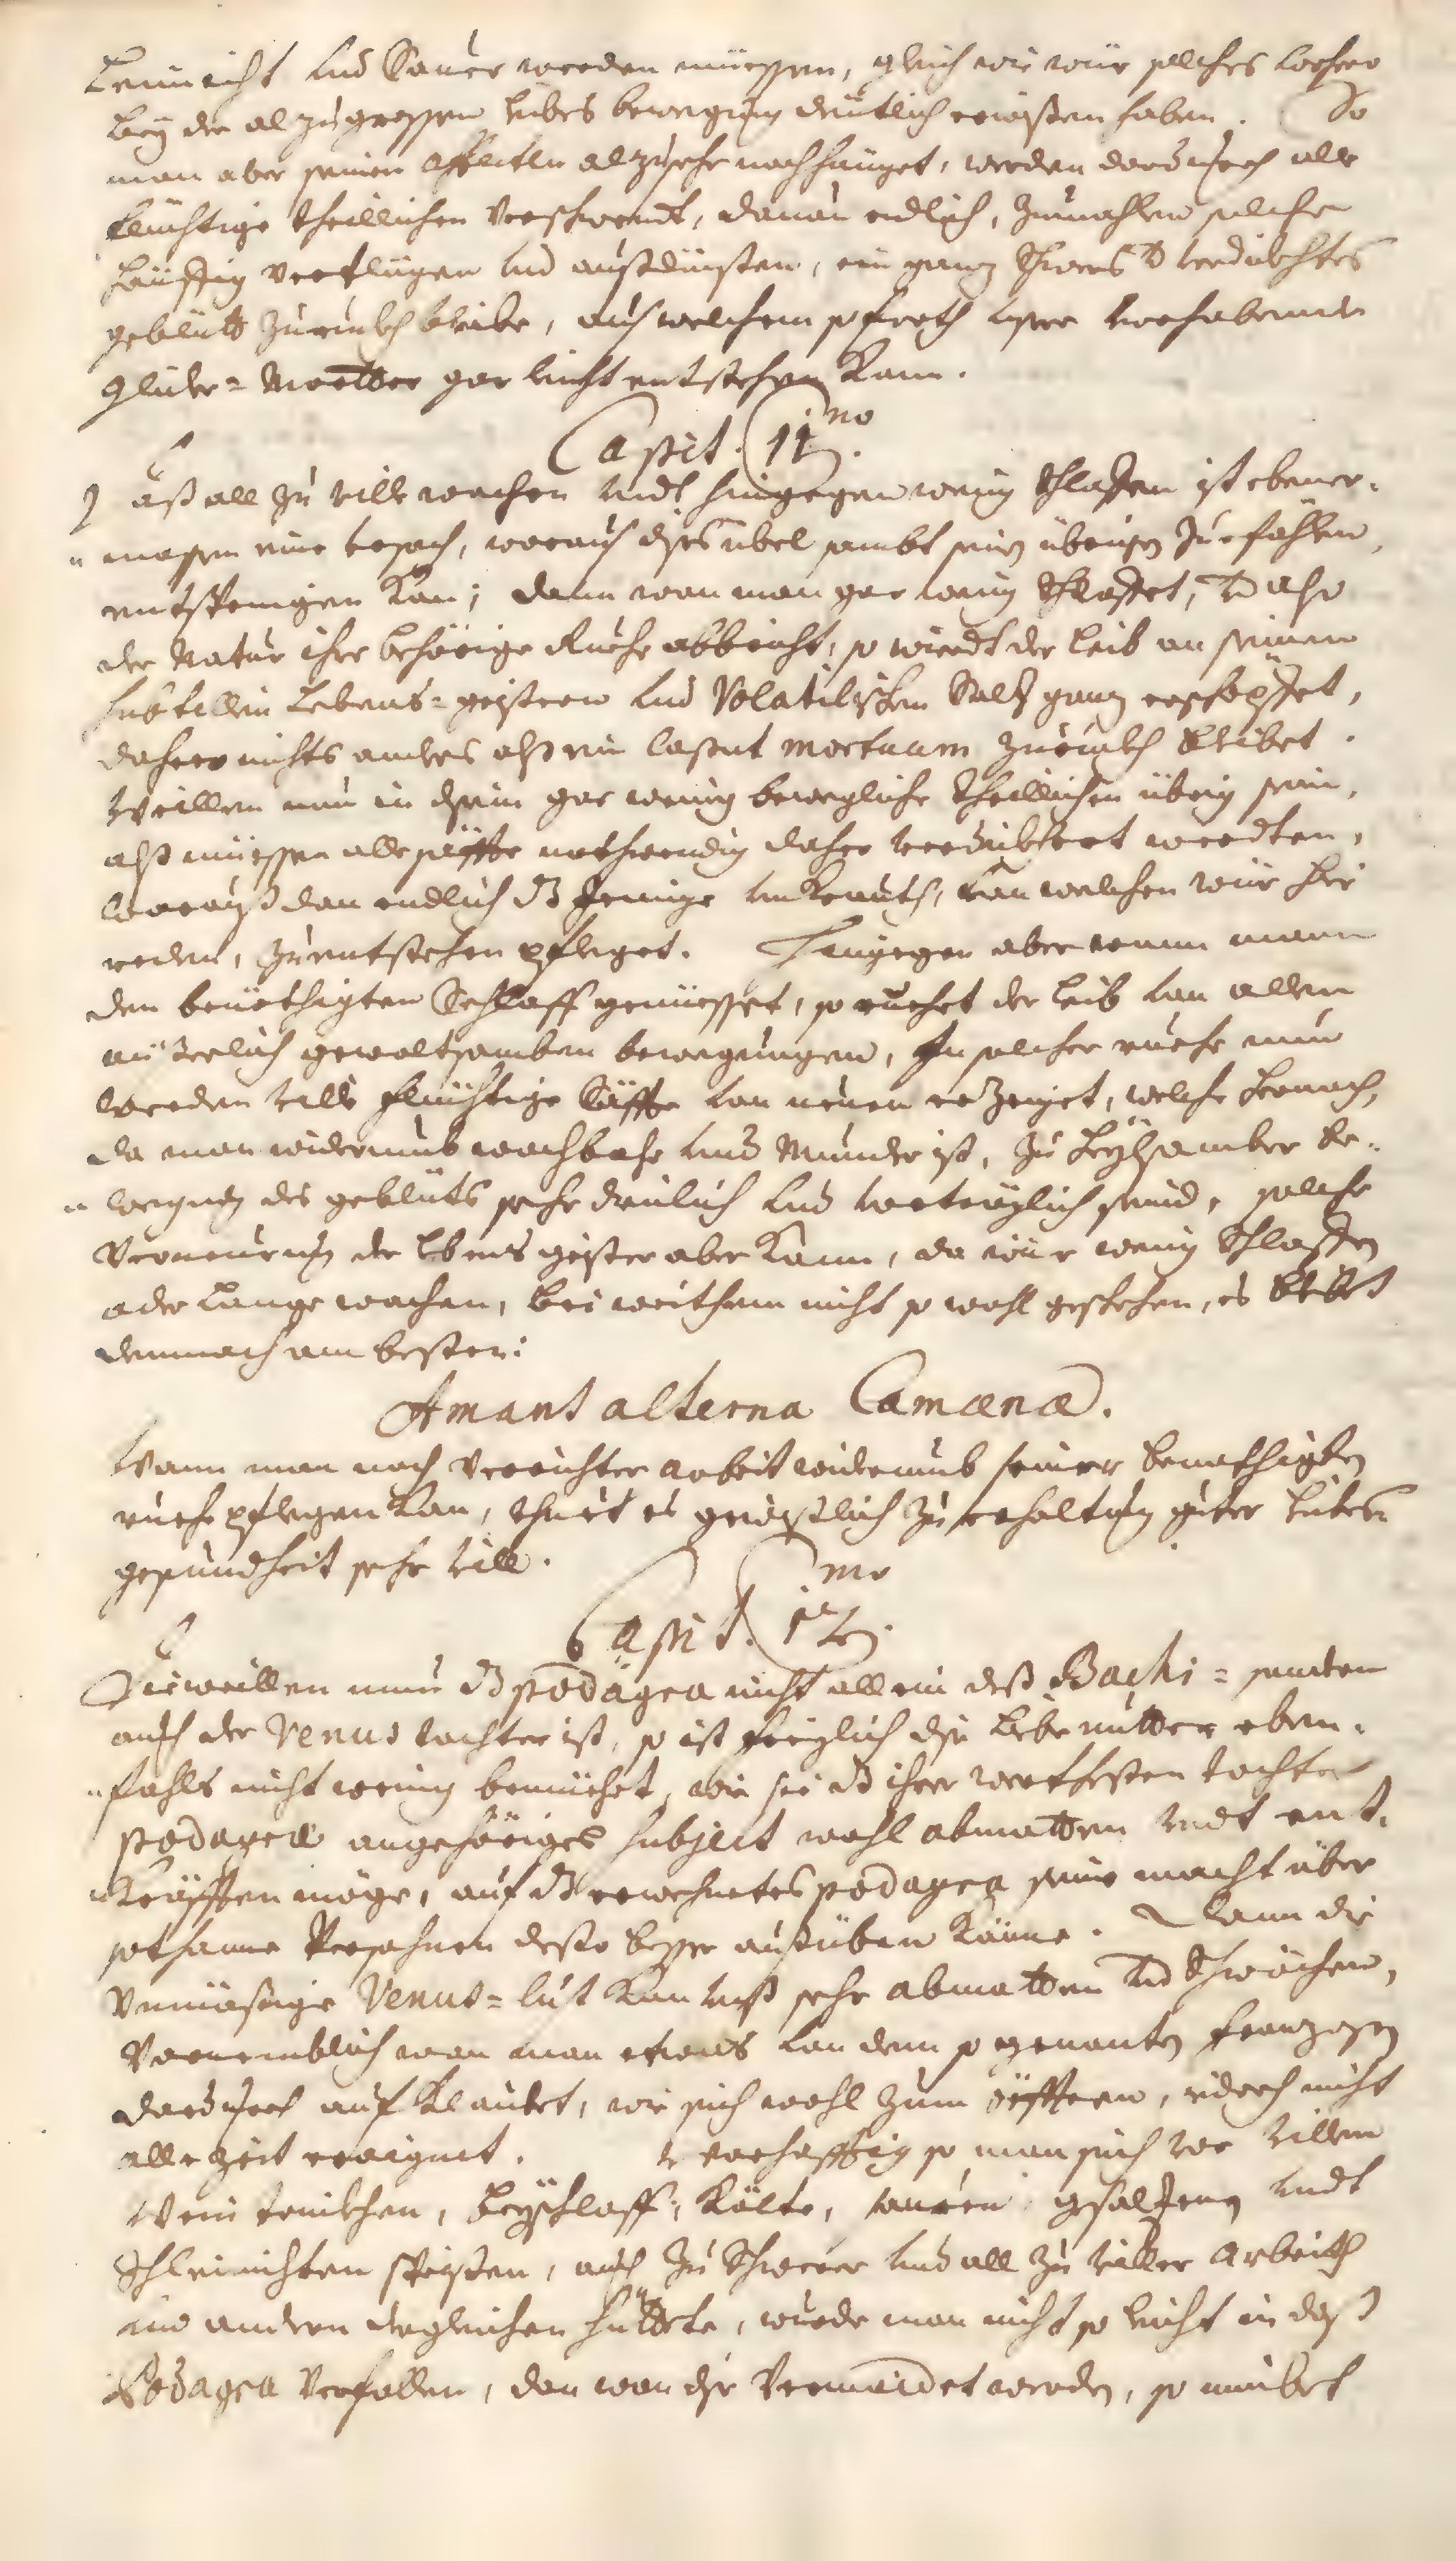 Leimicht und Sauer werden müessen, gleich wie wür solches vorhero
bey der al zu grossen leibes bewegung deutlich erwisen haben. So
man aber seinen affecten alzusehr nachhänget, werden dardurch alle
flüchtige theillichen verschwendt, davon endlich, zumahlen solche
häuffig verflügen und außdünsten, ein ganz schweres verdickhtes
geblüth zurückh bleibe, auß welchem so forth unser vorhabendte
glider-Martter gar leicht entstehen kann.
Capit. 11mo.
Daß all zu ville wachen undt hingegen wenig schlaffen ist ebener-
massen eine ursach, woraus dises übel sambt seinen übrigen Zuefählen
entspringen kan; dann wan man gar wenig schlaffet, also
der Natur ihre behörige Ruehe abbricht, so wierdt der leib an seinen
subtillen Lebens-geistern und Volatilischen Saltz ganz erschöpffet,
dahero nichts anders alß ein caput mortuum zuruckh bleibet.
Weillen nun in disem gar wenig bewegliche theillichen übrig sein,
alß müessen alle säffte nothwendig daher verdickhert werdten,
woraus dan endlich das Jenige unkraut, von welchen wür hie
reden, zu entstehen pfleget. Hingegen aber wann mann
den benöthigten Schlaff genüesset, so ruehet der leib von allen
eüserlich gewaltsamben bewegungen, In solcher ruehe nun
werden ville flüchtige Säffte von neuen erzeiget, welche hernach,
da man widerumb wachbahr und Munder ist, zu heylsamber be-
wegung des geblüts sehr dienlich und vorträglich seind, solche
Verneurung der lebens geister aber kann, da wür wenig schlaffen
oder Lange wachen, bei weithem nicht so wohl geschehen, es bleibt
demnach am besten:
Amant alterna Camœnæ.
Wann man nach verrichter arbeit widerumb seiner benöthigten
ruehe pflegen kan, thuet es gewißlich zu erhaltung guter leibes-
gesundheit sehr vill.
Capit. 12mo.
Dieweillen nun das podagra nicht allein deß Bachi- sondern
auch der Venus tochter ist, so ist freylich die liebe mutter eben-
fahls nicht wenig bemüehet, wie sie das ihrer werthesten tochter
podagræ angehöriges subject wohl abmatten undt ent-
kräfften möge, auf das erwehntes podagra seine macht über
sothanne Persohnen desto besser außüben könne. Dann die
Unmäßige Venus-lust kan unß sehr abmatten und schwächen,
Vornemblich wan man etwas von dem so genanten franzosen
dardurch aufklaubet, wie sich wohl zum öfftern, iedoch nicht
alle zeit eraignet. so man sich vor villem
Wein trinckhen, beyschlaff, kälte, sauren gesalzenen undt
schleimichten speisen, auch zu schwerer und all zu viller arbeith
und andern dergleichen hüttete, wurde man nicht so leicht in daß
Podagra verfallen, dan wan dise vermeidet werden, so